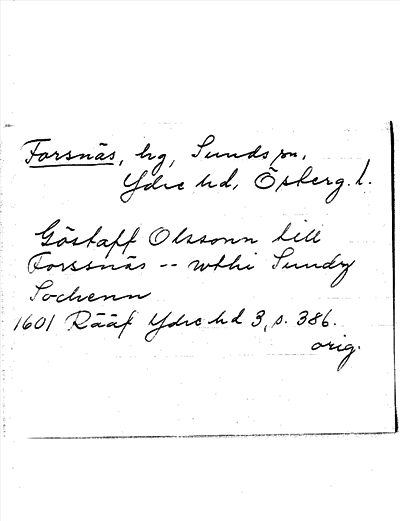 Forsnäs, hg, Sunds sn,
Ydre hd, Österg. l.
Göstaff Olssonn till
Forssnäs -- wthi Sundz
Sochenn
1601 Rääf Ydre hd 3, s. 386.
orig.